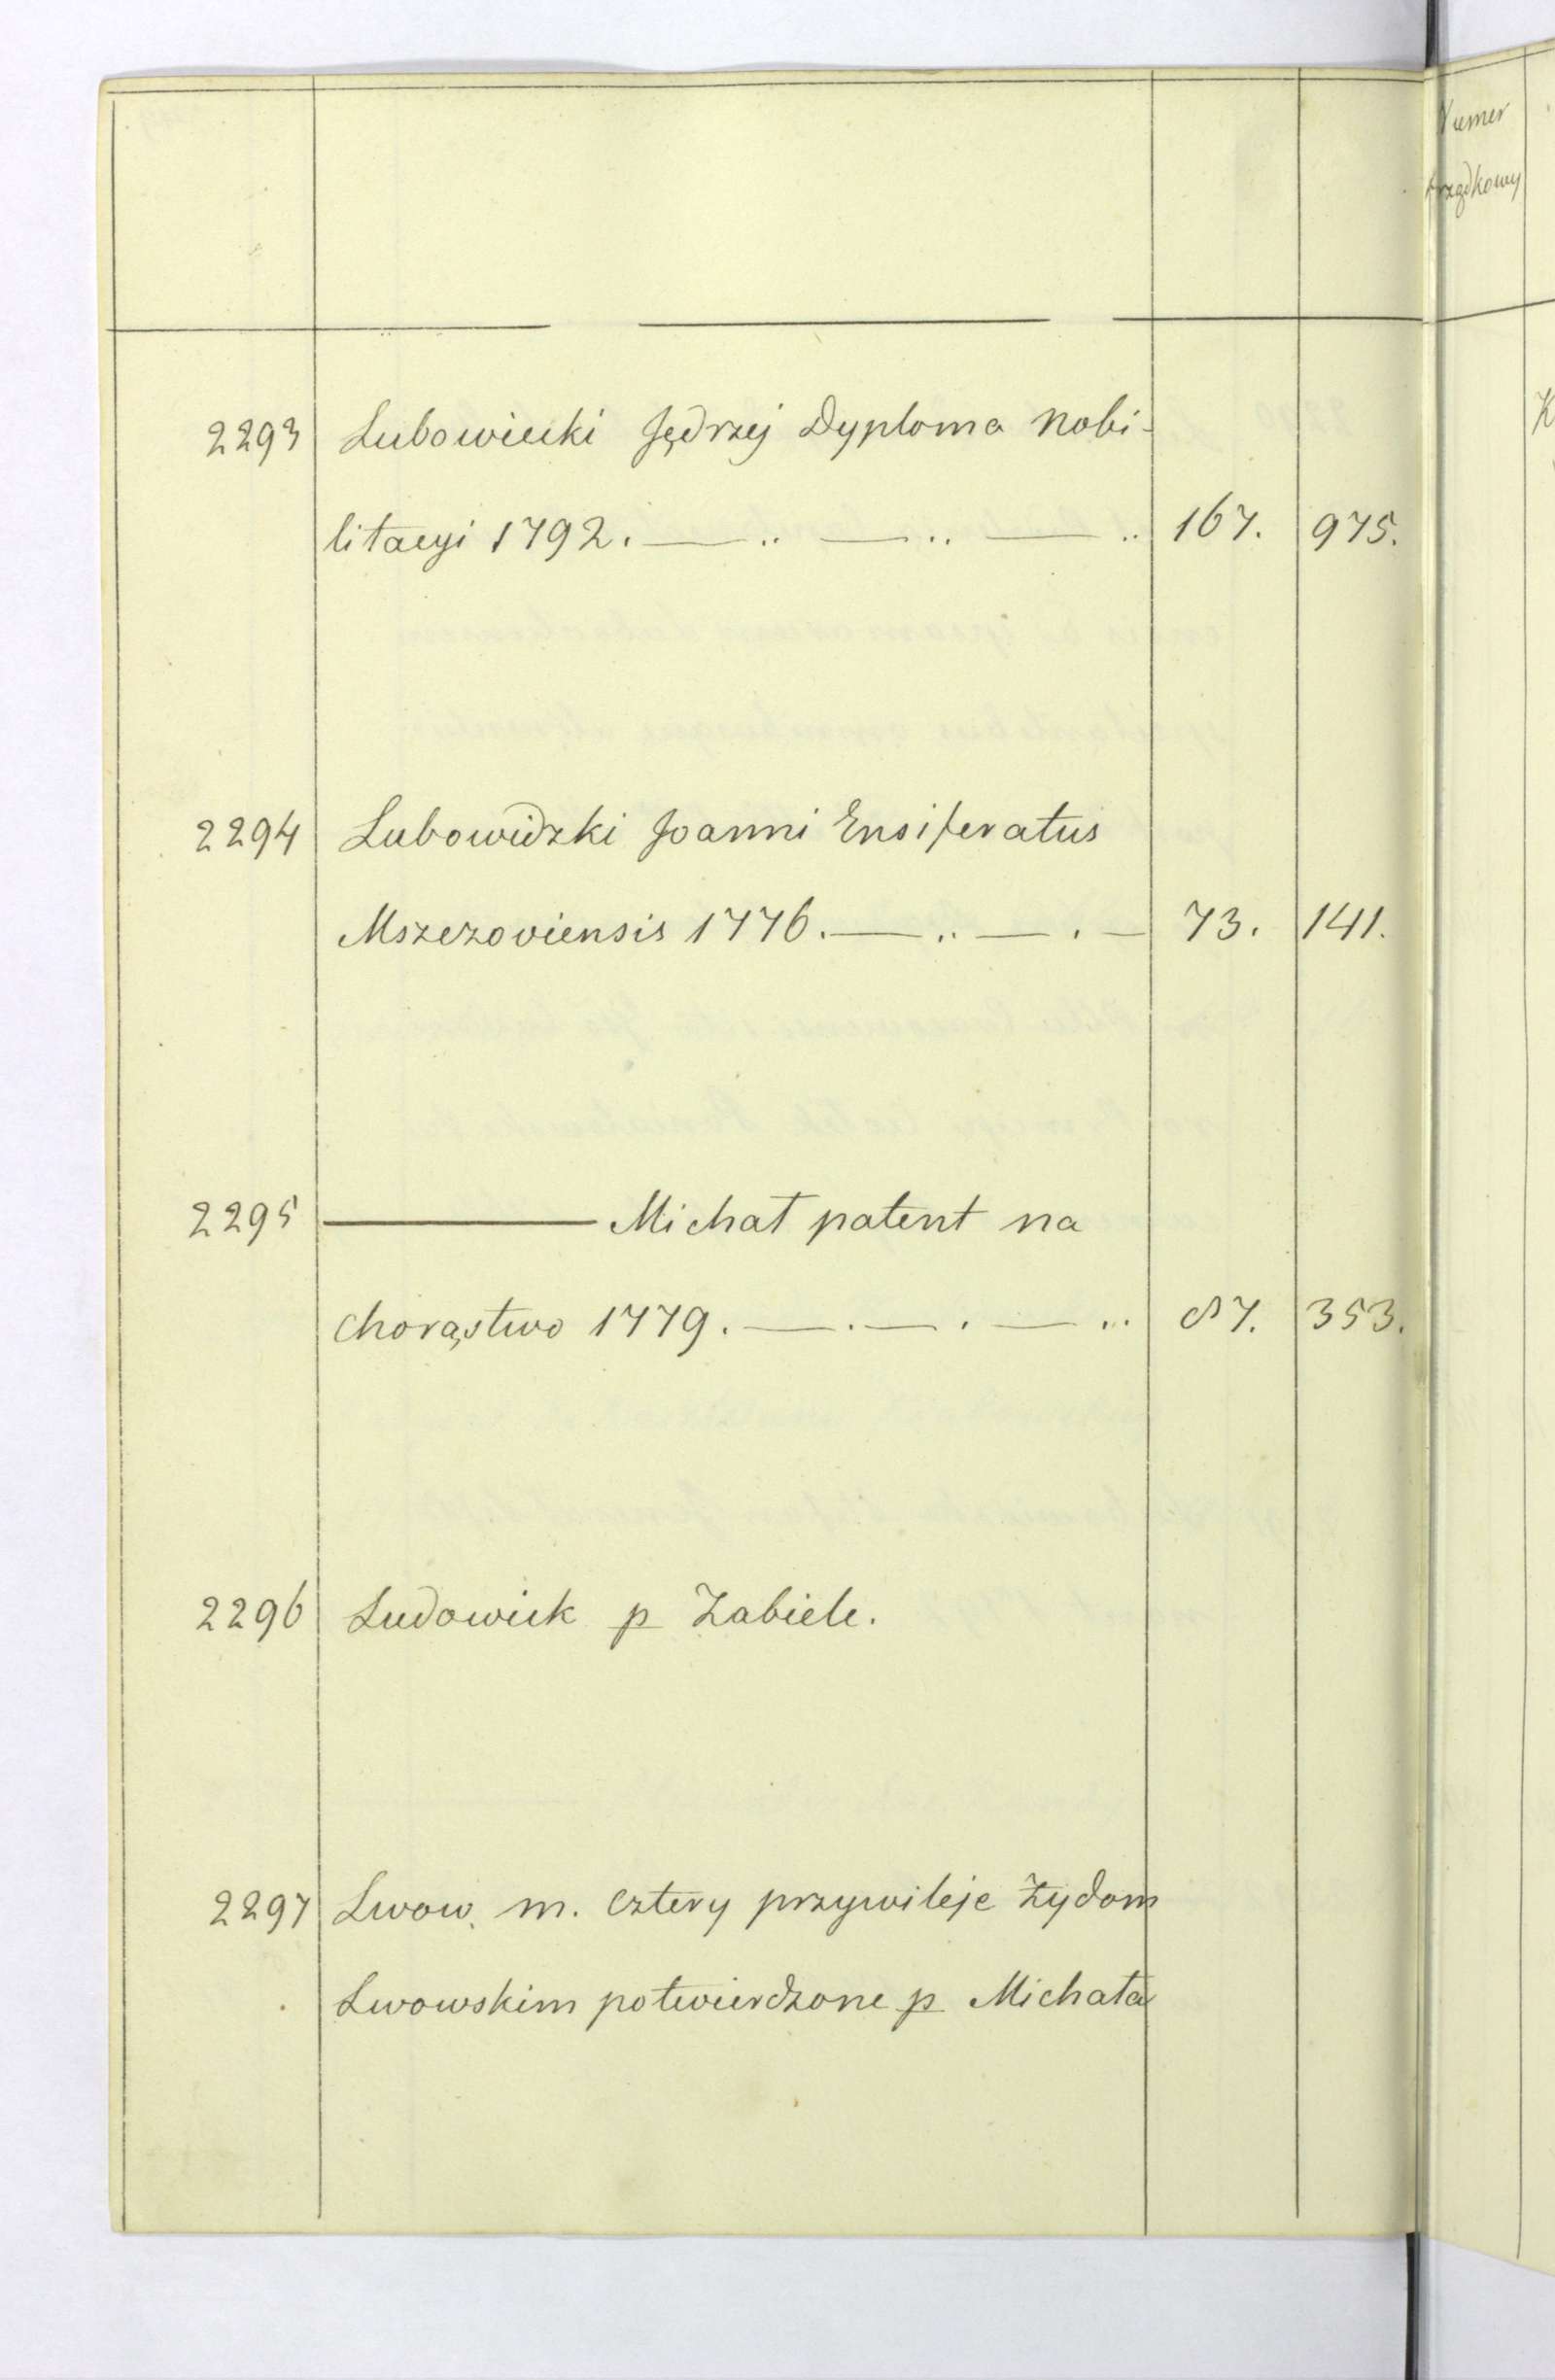 2293 Lubowiecki Jędrzej Dyploma Nobi-
litacyi 1792. 167. 975.
2294 Lubowidzki Joanni Ensiferatus
Mszczoviensis 1776. 73. 141.
2295 ——— Michał patent na
chorąstwo 1779. 87. 353.
2296 Ludowick p Zabiele.
2297 Lwow. m. cztery przywileje Żydom
Lwowskim potwierdzone p Michała
Numer